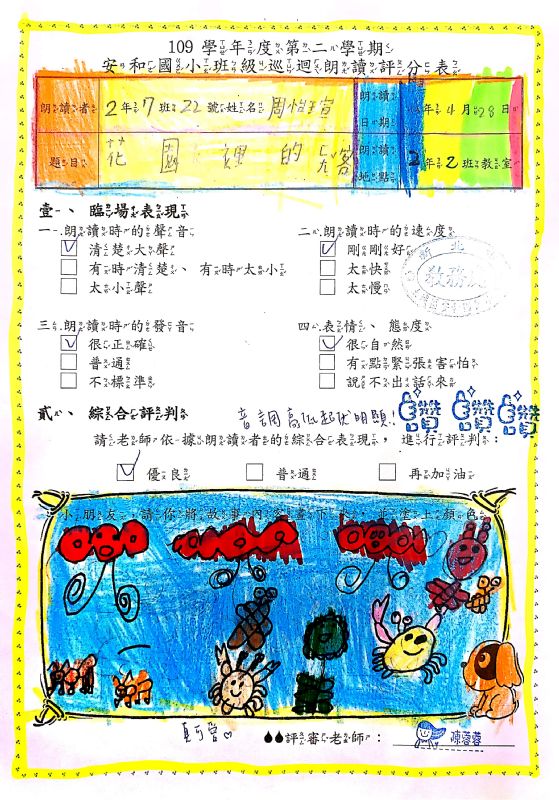 109 學年度第二學期
安和國小班級巡迴朗讀評分表
朗讀者 2年7班22號姓名 周怡萱 朗讀日期 年4月28日
題目 花園裡的 客 朗讀地點 2年2班教室
壹、臨場表現
一、朗讀時的聲音 二、朗讀時的速度
清楚大聲 剛剛好
有時清楚、有時太小 太快
太小聲 太慢
新北
教務處
三、朗讀時的發音 四、表情、態度
很正確 很自然
普通 有點緊張害怕
不標準 說不出話來
貳、綜合評判 音調高低起伏明顯! 讚 讚 讚
請老師依據朗讀者的綜合表現,進行評判:
優良 普通 再加油
小朋友,請你將故事內容畫下來,並塗上顏色
真可愛
評審老師: 陳蓉蓉